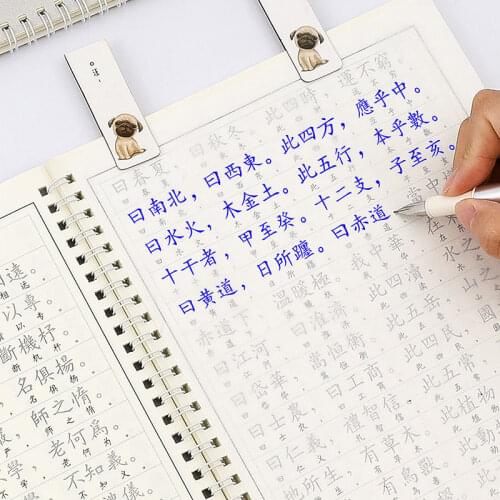 遠。
以專。
斷機杼
名俱揚。
師之惰。
老何為。
學，不知義。
禮儀。
曰春夏，曰秋冬。此四時，運不窮。
曰南北，曰西東。此四方，應乎中。
曰水火，木金土。此五行，本乎數。
十干者，甲至癸。十二支，子至亥。
曰黃道，日所躔。曰赤道，當中
赤道下，溫暖極。我中華，在東
曰江河，曰淮濟。此四瀆，水之
曰岱華，嵩恆衡。此五岳，山之
曰士農，曰工商。此四民，國
曰仁義，禮智信。此五常，
地所生，有草木。此植物
有蟲魚。此動